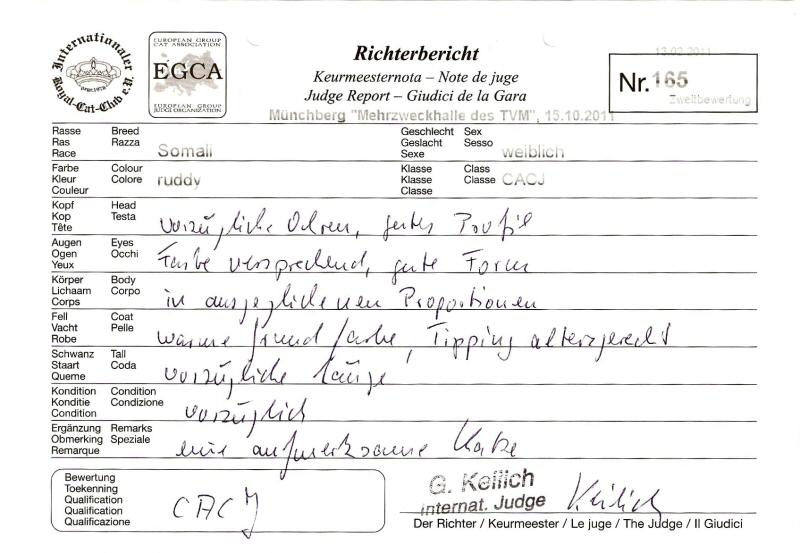 Internationaler Royal-Cat-Club e.V.
EUROPEAN GROUP
CAT ASSOCIATION
EGCA
EUROPEAN GROUP
JUDGE ORGANIZATION
Richterbericht
Keurmeesternota – Note de juge
Judge Report – Giudici de la Gara
Münchberg "Mehrzweckhalle des TVM", 15.10.2011
13.02.2011
Nr. 165
Zweitbewertung
Rasse Breed
Ras Razza
Race
Somali
Geschlecht Sex
Geslacht Sesso
Sexe
weiblich
Farbe Colour
Kleur Colore
Couleur
ruddy
Klasse Class
Klasse Classe
Classe
CACJ
Kopf Head
Kop Testa
Tête
vorzügliche Ohren, gutes Profil
Augen Eyes
Ogen Occhi
Yeux
Farbe versprechend, gute Form
Körper Body
Lichaam Corpo
Corps
in ausgeglichenen Proportionen
Fell Coat
Vacht Pelle
Robe
warme Grundfarbe, Tipping altersgerecht
Schwanz Tail
Staart Coda
Queme
vorzügliche Länge
Kondition Condition
Konditie Condizione
Condition
vorzüglich
Ergänzung Remarks
Obmerking Speziale
Remarque
eine aufmerksame Katze
Bewertung
Toekenning
Qualification
Qualification
Qualificazione
CACJ
G. Keilich
Internat. Judge
Keilich
Der Richter / Keurmeester / Le juge / The Judge / Il Giudici